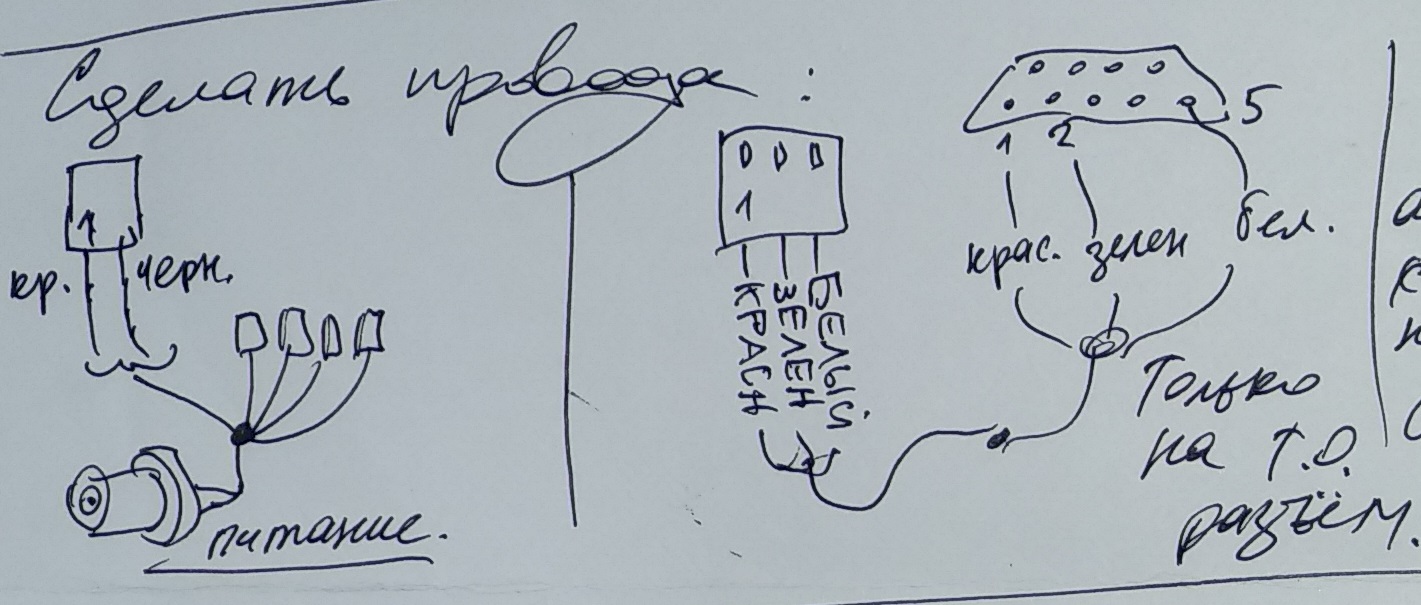 Сделать провода:
кр. черн.
питание.
1
КРАСН
ЗЕЛЕН
БЕЛЫЙ
5
1 2
крас. зелен бел.
Только
на Т.О.
разъём.